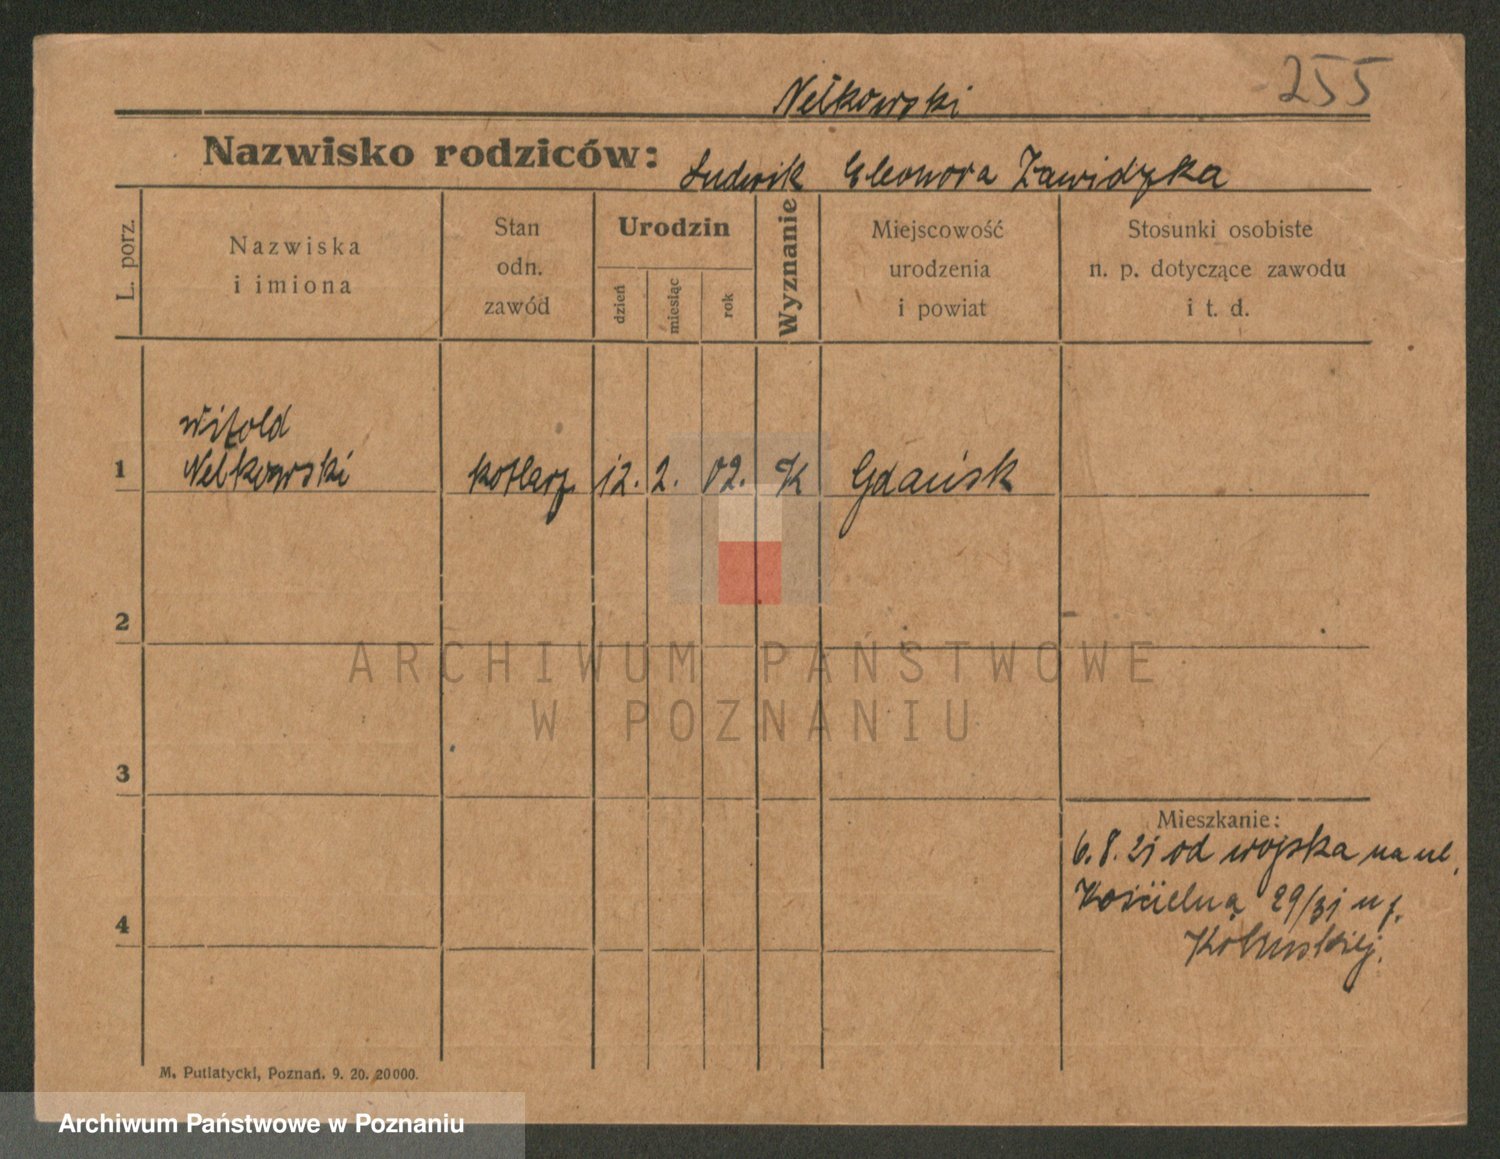 255
Nelkowski
Nazwisko rodziców: Ludwik Eleonora Zawidzka
L. porz.
Nazwiska
i imiona
Stan
odn.
zawód
Urodzin
dzień
miesiąc
rok
Wyznanie
Miejscowość
urodzenia
i powiat
Stosunki osobiste
n. p. dotyczące zawodu
i t. d.
Witold
1 Nelkowski kotlarz 12. 2. 02. K Gdańsk
2
ARCHIWUM PAŃSTWOWE
W POZNANIU
3
Mieszkanie:
6.8.21 od wojska na ul.
4 Kościelną 29/31 u
M. Putiatycki, Poznań. 9. 20. 20000.
Archiwum Państwowe w Poznaniu